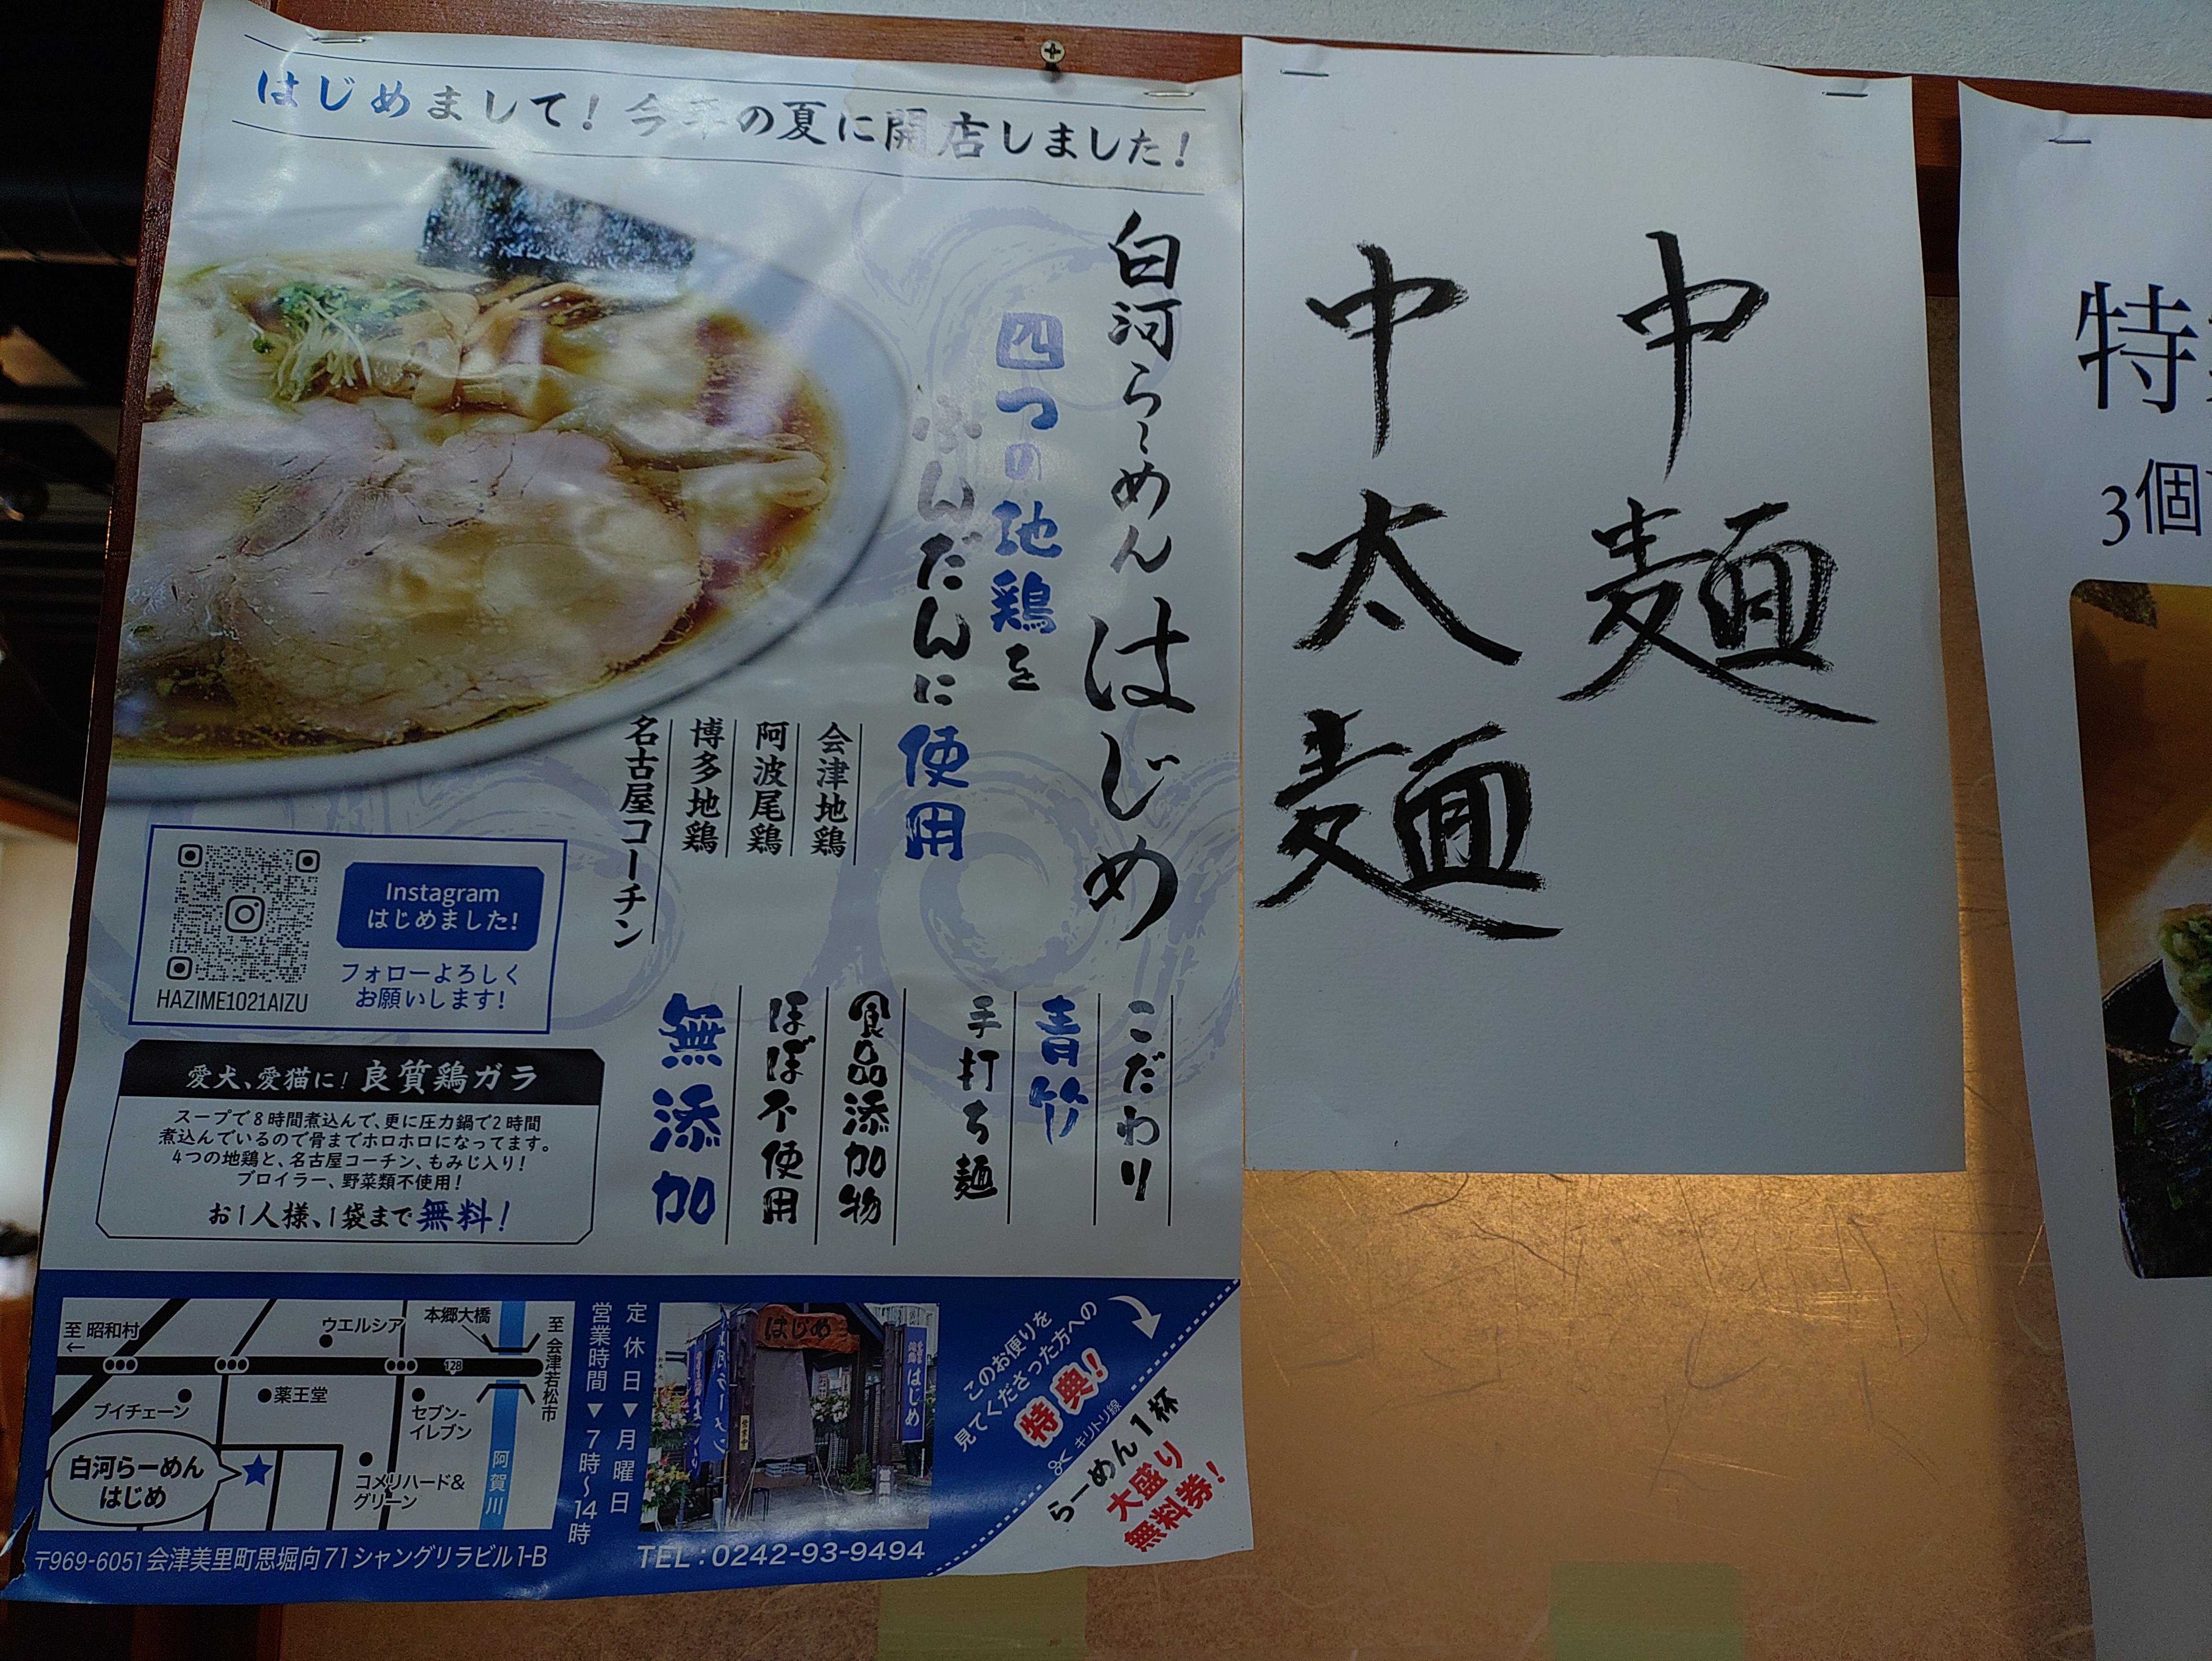 はじめまして！今年の夏に開店しました！
白河らーめん はじめ
四つの地鶏を
ふんだんに使用
会津地鶏
阿波尾鶏
博多地鶏
名古屋コーチン
Instagram
はじめました！
フォローよろしく
お願いします！
HAZIME1021AIZU
こだわり
青竹
手打ち麺
食品添加物
ほぼ不使用
無添加
愛犬、愛猫に！良質鶏ガラ
スープで8時間煮込んで、更に圧力鍋で2時間
煮込んでいるので骨までホロホロになってます。
4つの地鶏と、名古屋コーチン、もみじ入り！
ブロイラー、野菜類不使用！
お1人様、1袋まで無料！
至 昭和村
←
ウエルシア
本郷大橋
至 会津若松市
128
ブイチェーン
薬王堂
セブン-
イレブン
白河らーめん
はじめ
コメリハード&
グリーン
阿賀川
定休日▼月曜日
営業時間▼7時〜14時
はじめ
はじめ
このお便りを
見てくださった方への
特典！
キリトリ線
らーめん1杯
大盛り
無料券！
〒969-6051 会津美里町思堀向71 シャングリラビル1-B
TEL : 0242-93-9494
中麺
中太麺
特
3個